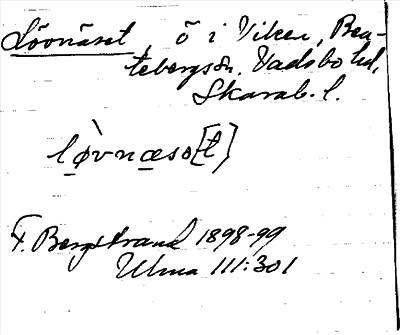 Lövnäset, ö i Viken, Bea-
tebergs sn. Vadsbo hd,
Skarab. l.
lø̀vnæsə[t]
F. Bergstrand 1898-99
Ulma 111:301